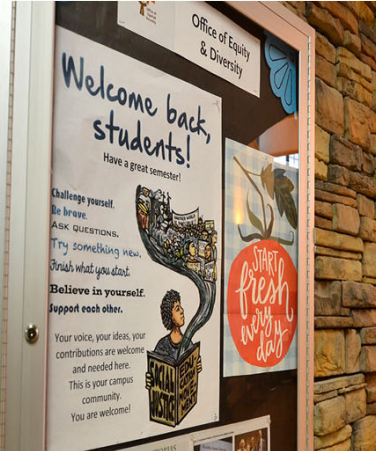 Office of Equity
& Diversity
Welcome back,
students!
Have a great semester!
Challenge yourself.
Be brave.
ASK QUESTIONS.
Try something new.
Finish what you start.
Believe in yourself.
Support each other.
Your voice, your ideas, your
contributions are welcome
and needed here.
This is your campus
community.
You are welcome!
SOCIAL
JUSTICE
START
fresh
every
day